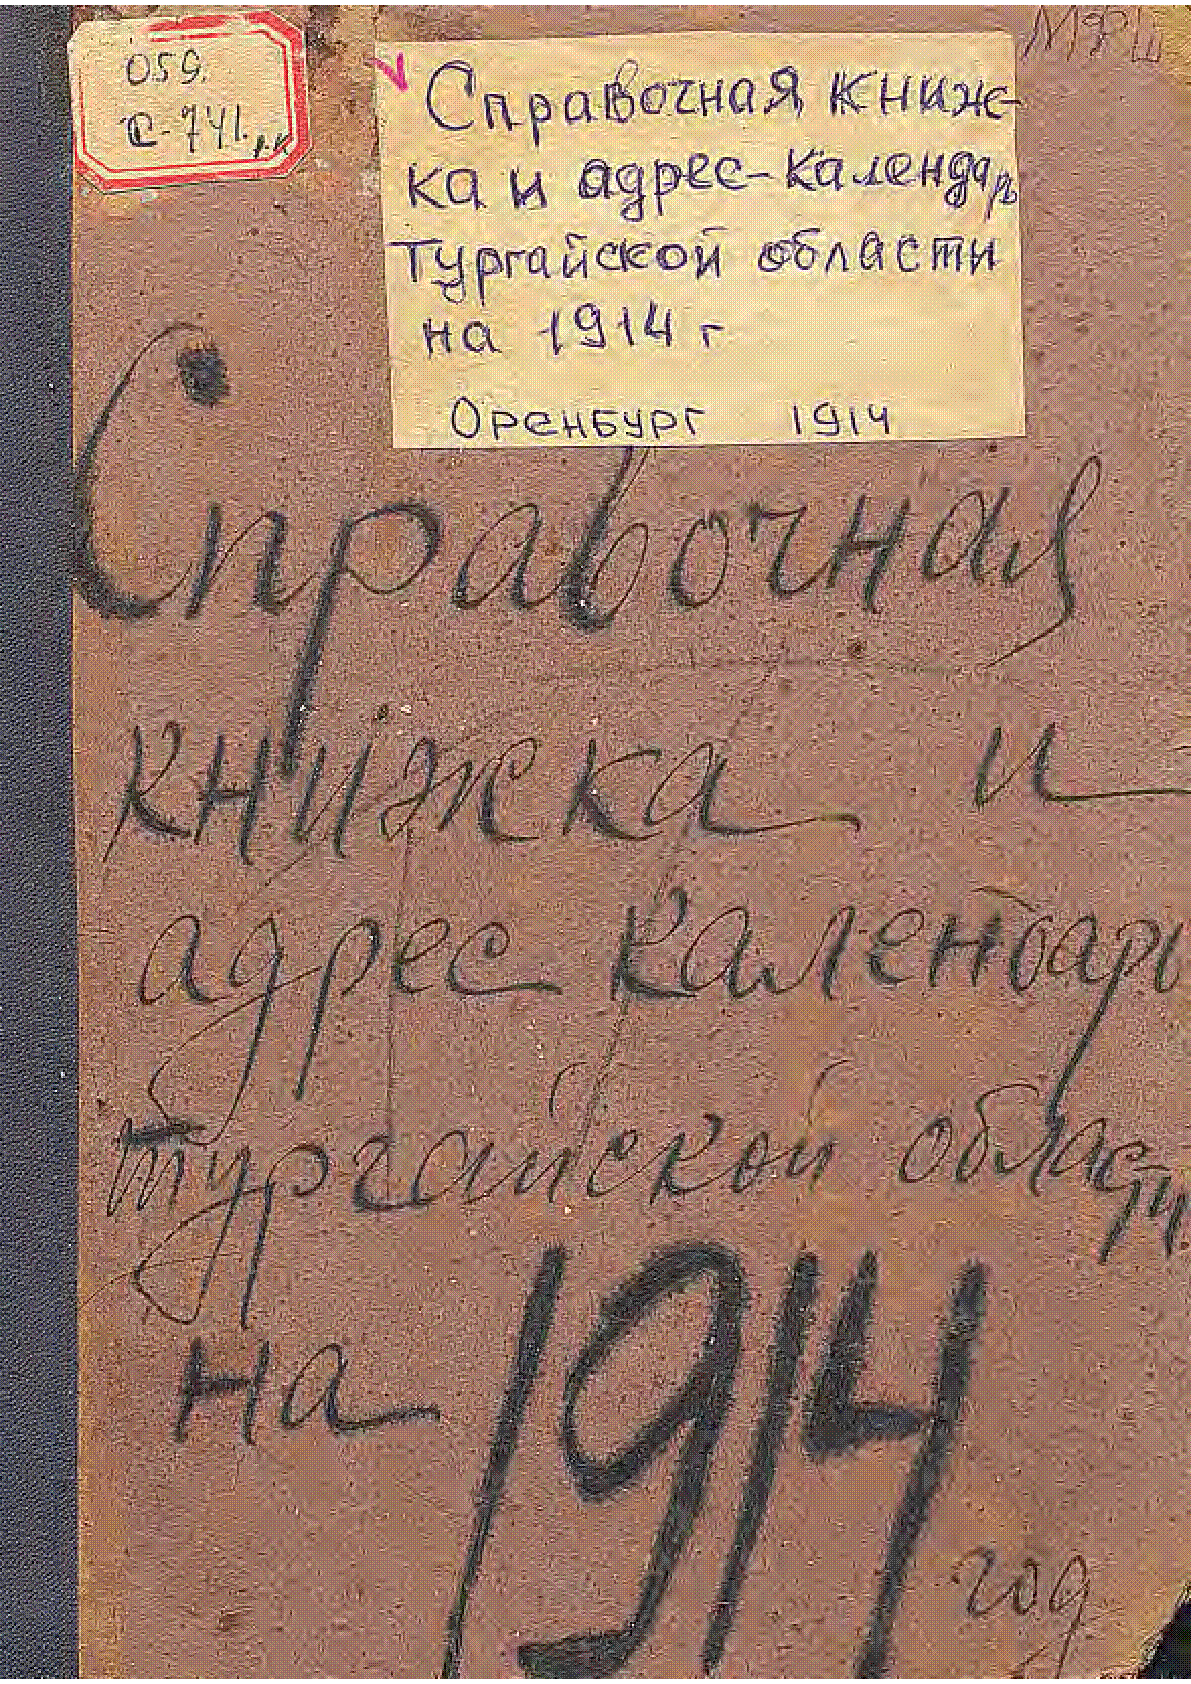 059.
С-741.
Справочная книж-
ка и адрес-календарь
Тургайской области
на 1914 г
Оренбург 1914
Справочная
книжка и
адрес календарь
тургайской области
на 1914
год